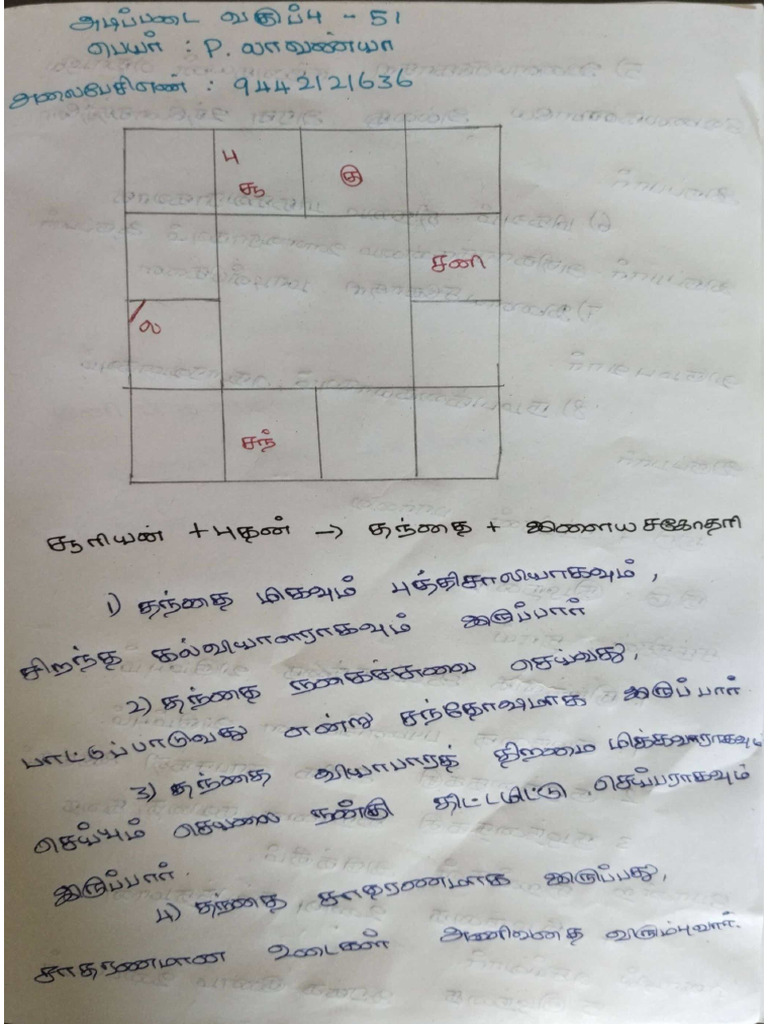 அடிப்படை வகுப்பு - 51
பெயர் : P. லாவண்யா
அலைபேசிஎண் : 9442121636
பு
சூ
கு
சனி
ல
சந்
சூரியன் + புதன் → தந்தை + இளைய சகோதரி
1) தந்தை மிகவும் புத்திசாலியாகவும்,
சிறந்த கல்வியாளராகவும் இருப்பார்
2) தந்தை நகைச்சுவை செய்வது,
பாட்டுப்பாடுவது என்று சந்தோஷமாக இருப்பார்.
3) தந்தை வியாபாரத் திறமை மிக்கவராகவும்
செய்யும் செயலை நன்கு திட்டமிட்டு செய்பராகவும்
இருப்பார்.
4) தந்தை சாதாரணமாக இருப்பது,
சாதரணமான உடைகள் அணிவதை விரும்புவார்.